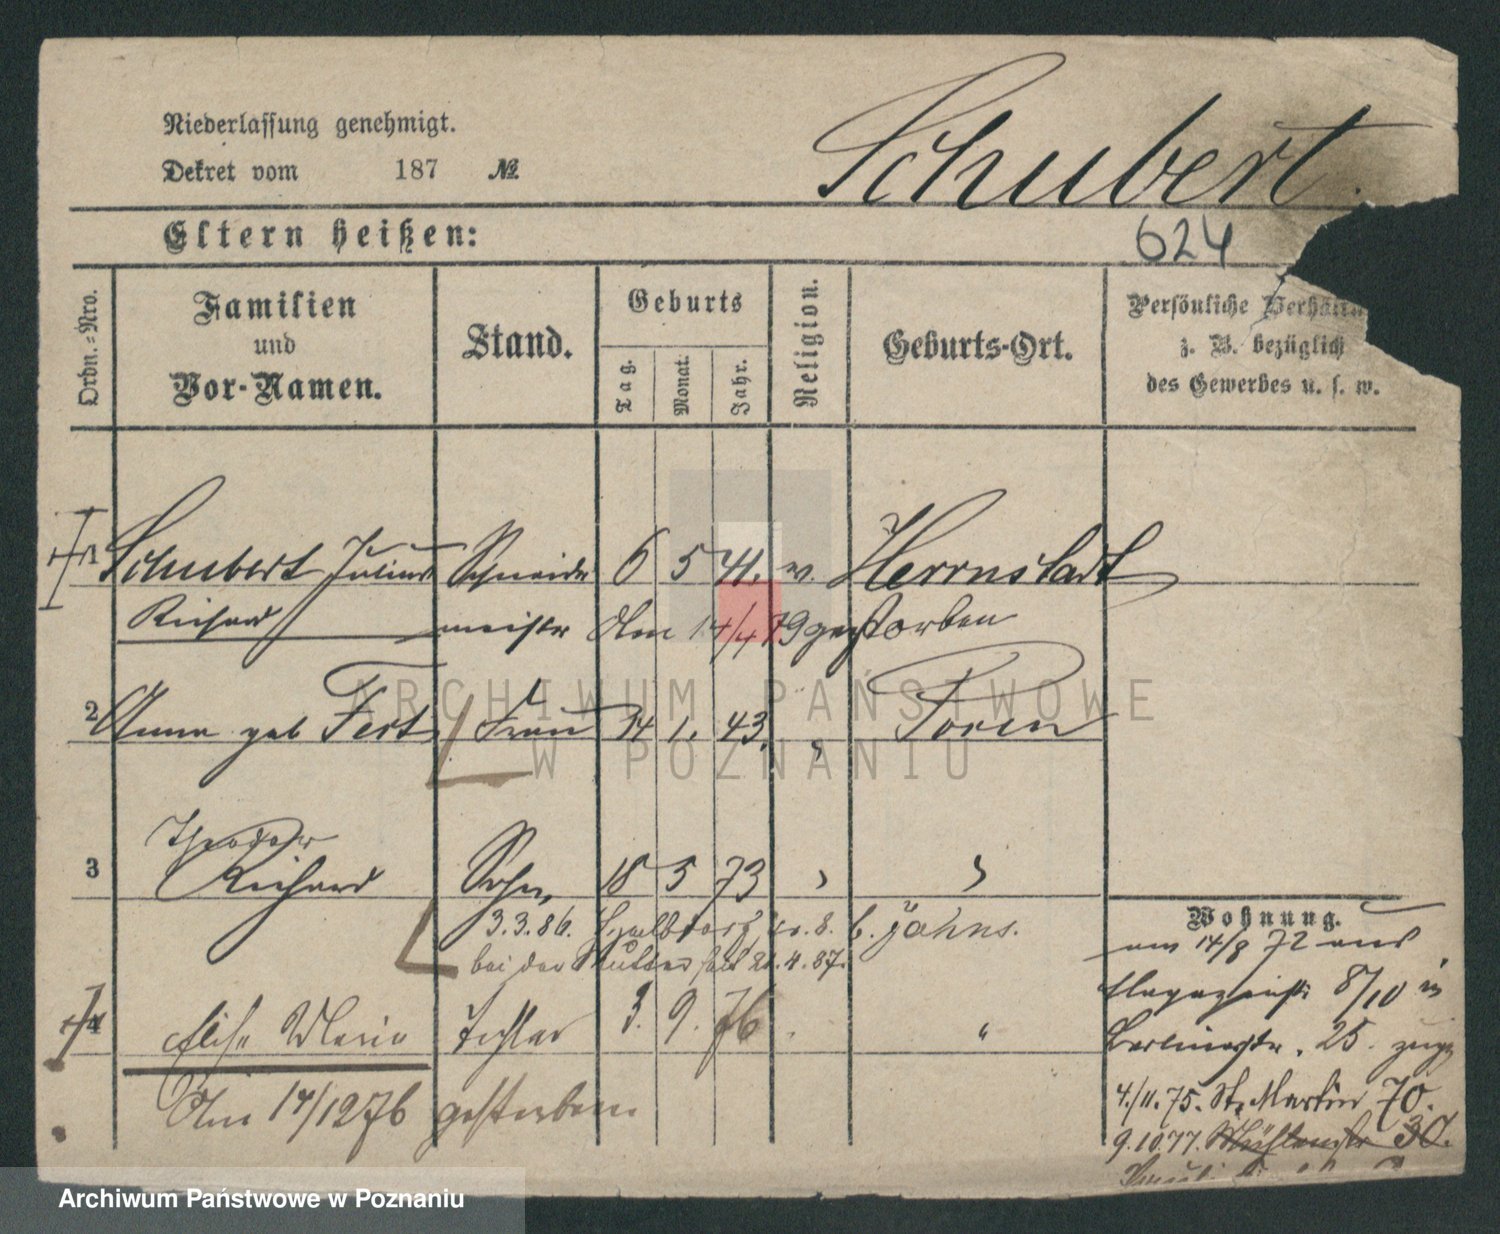 Niederlassung genehmigt.
Dekret vom 187 №
Schubert.
Eltern heißen:
624
Ordn.-Nro.
Familien
und
Vor-Namen.
Stand.
Geburts
Tag.
Monat.
Jahr.
Religion.
Geburts-Ort.
Persönliche
z. B. bezüglich
des Gewerbes u. s. w.
1 Schubert Julius Schneider 6 5 41. ev. Herrnstadt
Richard meister Am 14/4 79 gestorben
2 Anna geb Fert Frau 14 1. 43. " Posen
Theodor
3 Richard Sohn, 18 5 73 " "
3.3.86. b. Jahns.
bei der Mutter seit 21.4.87.
4 Elise Marie Tochter 3. 9. 76 "
Am 14/12 76 gestorben
Wohnung.
am 14/8 72 aus
8/10 in
Berlinerstr. 25.
4./11.75. St. Martin 70.
9.10.77. Mühlenstr 30.
ARCHIWUM PAŃSTWOWE
W POZNANIU
Archiwum Państwowe w Poznaniu